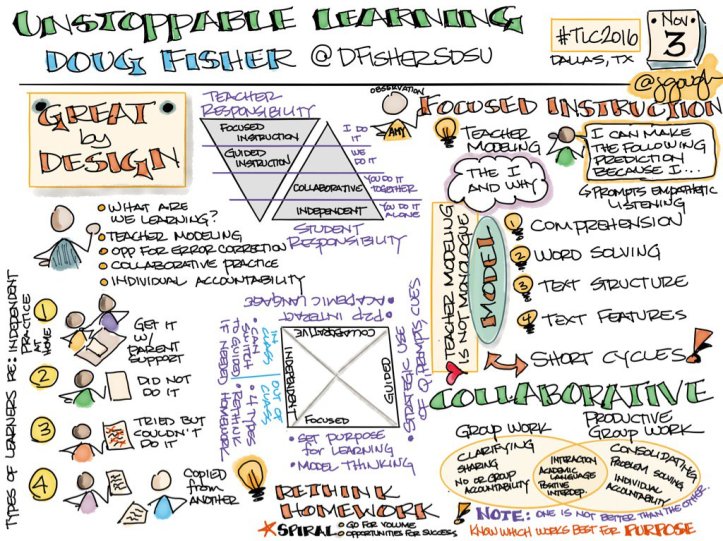 UNSTOPPABLE LEARNING
DOUG FISHER @DFISHERSDSU
#TLC2016
DALLAS, TX
NOV
3
@jgough
GREAT
by
DESIGN
WHAT ARE
WE LEARNING?
TEACHER MODELING
OPP FOR ERROR CORRECTION
COLLABORATIVE PRACTICE
INDIVIDUAL ACCOUNTABILITY
TEACHER
RESPONSIBILITY
FOCUSED
INSTRUCTION
GUIDED
INSTRUCTION
COLLABORATIVE
INDEPENDENT
I DO
IT
WE
DO IT
YOU DO IT
TOGETHER
YOU DO IT
ALONE
STUDENT
RESPONSIBILITY
OBSERVATION
AMY
FOCUSED INSTRUCTION
TEACHER
MODELING
I CAN MAKE
THE FOLLOWING
PREDICTION
BECAUSE I...
PROMPTS EMPATHETIC
LISTENING
THE I
AND WHY
TEACHER MODELING
IS NOT MONOLOGUE
MODEL
1 COMPREHENSION
2 WORD SOLVING
3 TEXT STRUCTURE
4 TEXT FEATURES
SHORT CYCLES!
TYPES OF LEARNERS RE: INDEPENDENT
PRACTICE
AT
HOME
1
GET IT
W/
PARENT
SUPPORT
2
DID NOT
DO IT
3
TRIED BUT
COULDN'T
DO IT
4
COPIED
from
ANOTHER
ACADEMIC LANGUAGE
P2P INTERACT
COLLABORATIVE
INDEPENDENT
GUIDED
FOCUSED
STRATEGIC USE
OF ?, PROMPTS, CUES
IN
CLASS
CAN
SWITCH
TO GUIDED
IF NEEDED
OUT OF
CLASS
4 TYPES
RETHINK
HOMEWORK
SET PURPOSE
for LEARNING
MODEL THINKING
RETHINK
HOMEWORK
SPIRAL
GO FOR VOLUME
OPPORTUNITIES FOR SUCCESS
COLLABORATIVE
GROUP WORK
PRODUCTIVE
GROUP WORK
CLARIFYING
SHARING
NO OR GROUP
ACCOUNTABILITY
INTERACTION
ACADEMIC
LANGUAGE
POSITIVE
INTERDEP.
CONSOLIDATING
PROBLEM SOLVING
INDIVIDUAL
ACCOUNTABILITY
! NOTE: ONE IS NOT BETTER THAN THE OTHER.
KNOW WHICH WORKS BEST FOR PURPOSE